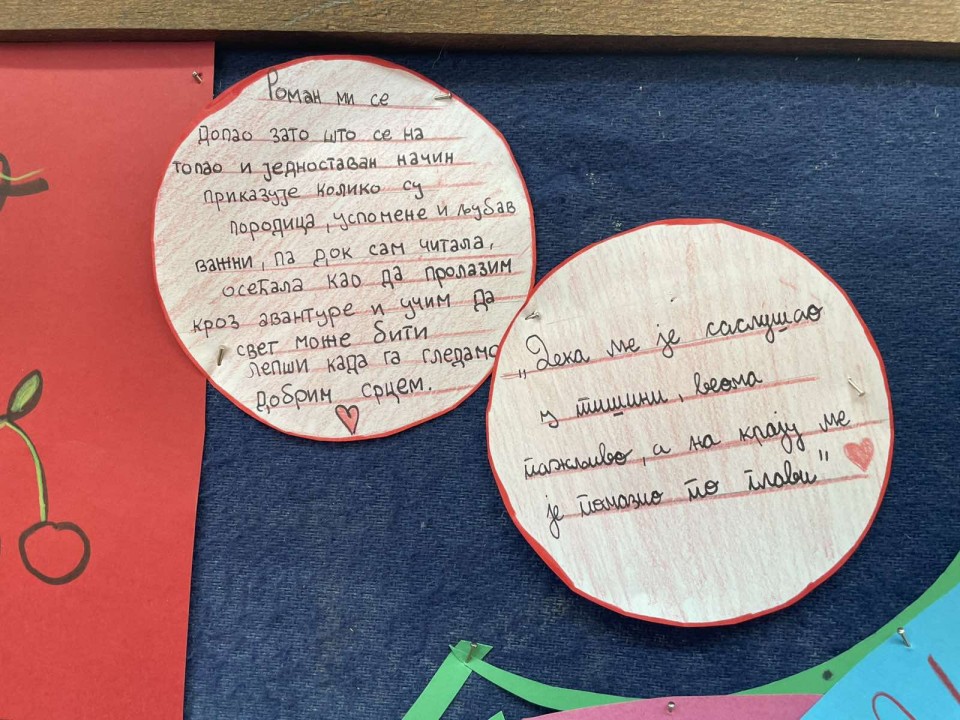 Роман ми се
допао зато што се на
топао и једноставан начин
приказује колико су
породица, успомене и љубав
важни, па док сам читала,
осећала као да пролазим
кроз авантуре и учим да
свет може бити
лепши када га гледамо
добрим срцем.
„Дека ме је саслушао
у тишини, веома
пажљиво, а на крају ме
је помазио по глави"